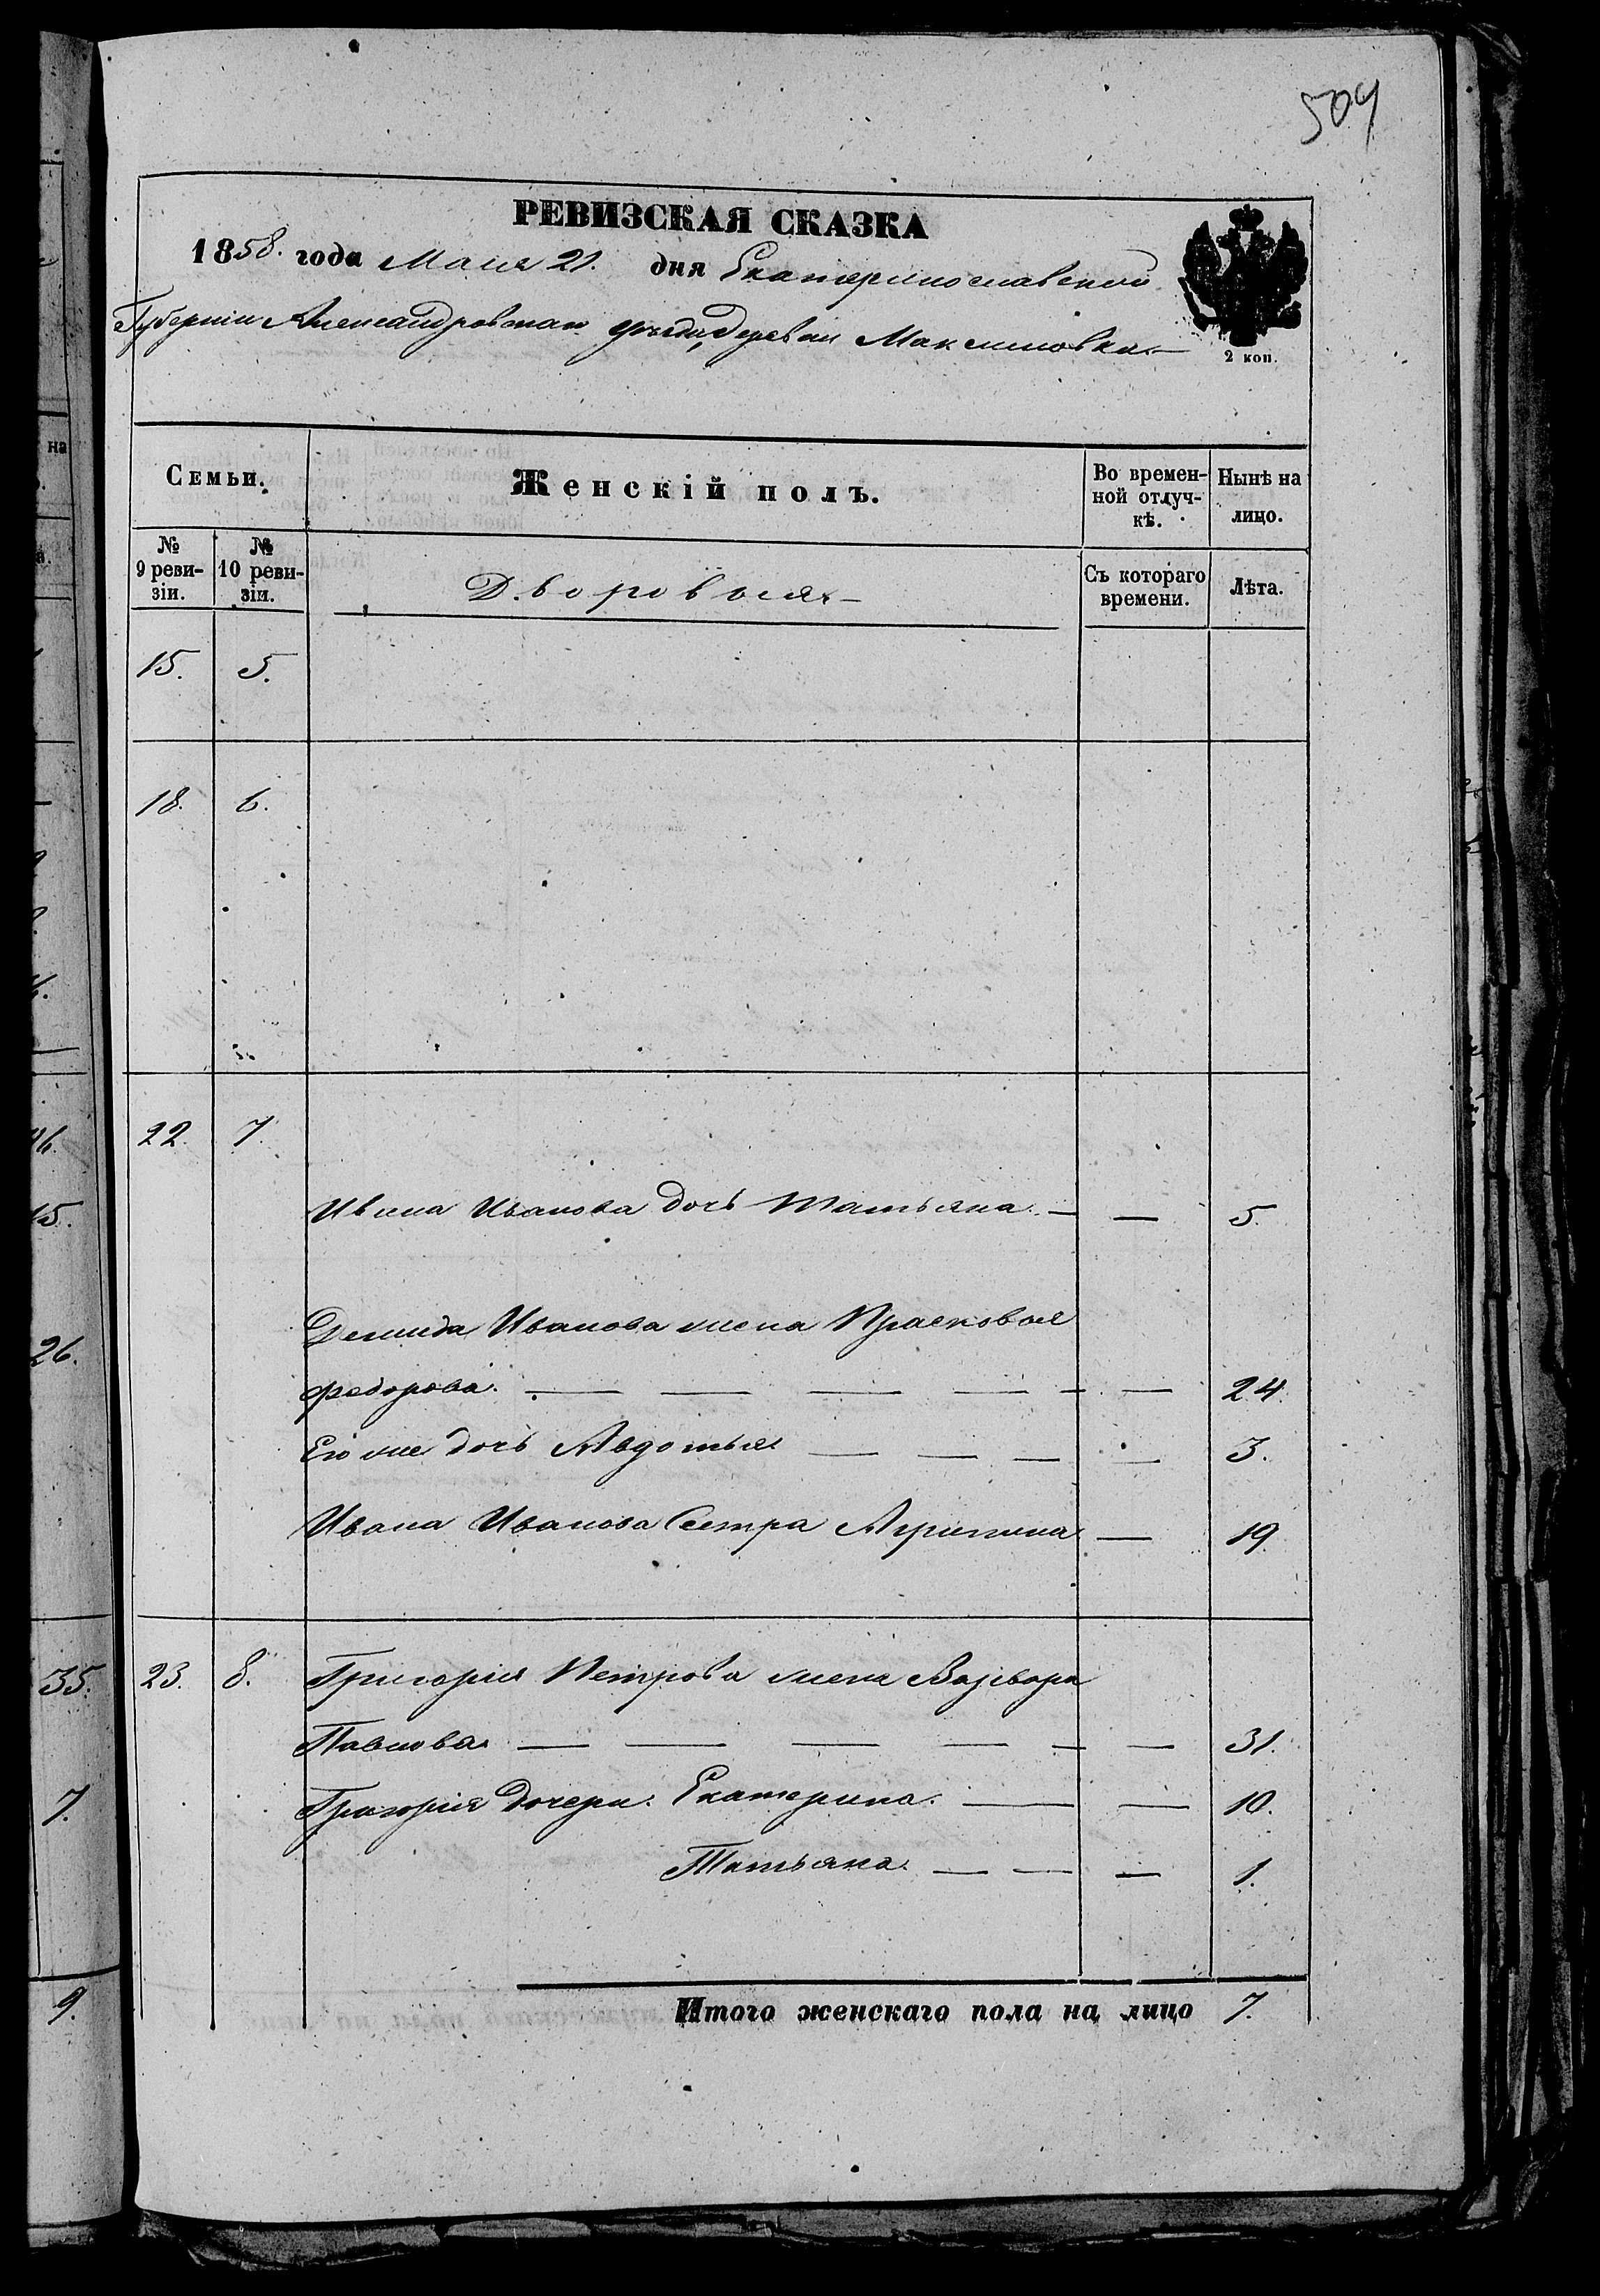 504
РЕВИЗСКАЯ СКАЗКА
1858. года Маия 21. дня Екатеринославской
Губерніи Александровскаго уѣзда, деревни Максимовки
2 коп.
Семьи.
Женскій полъ.
Во времен-
ной отлуч-
кѣ.
Нынѣ на
лицо.
№
9 реви-
зіи.
№
10 реви-
зіи.
Дворовыя
Съ котораго
времени.
Лѣта.
15. 5.
18. 6.
22. 7.
Ивана Иванова дочь Татьяна. — — 5.
Демида Иванова жена Прасковья
Федорова. — — — — — — 24.
Его же дочь Авдотья — — — — 3.
Ивана Иванова Сестра Агрипина — 19.
23. 8. Григорія Петрова жена Варвара
Павлова — — — — — — 31.
Григорія дочери. Екатерина. — — 10.
Татьяна. — — — 1.
Итого женскаго пола на лицо 7.
на
16.
15.
26.
35.
7.
9.